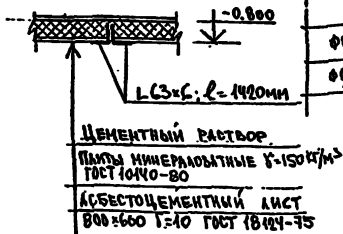 -0.800
L 63×5; ℓ=1420мм
ЦЕМЕНТНЫЙ РАСТВОР
ПЛИТЫ МИНЕРАЛОВАТНЫЕ γ=150кг/м³
ГОСТ 10140-80
АСБЕСТОЦЕМЕНТНЫЙ ЛИСТ
800×600 δ=10 ГОСТ 18124-75